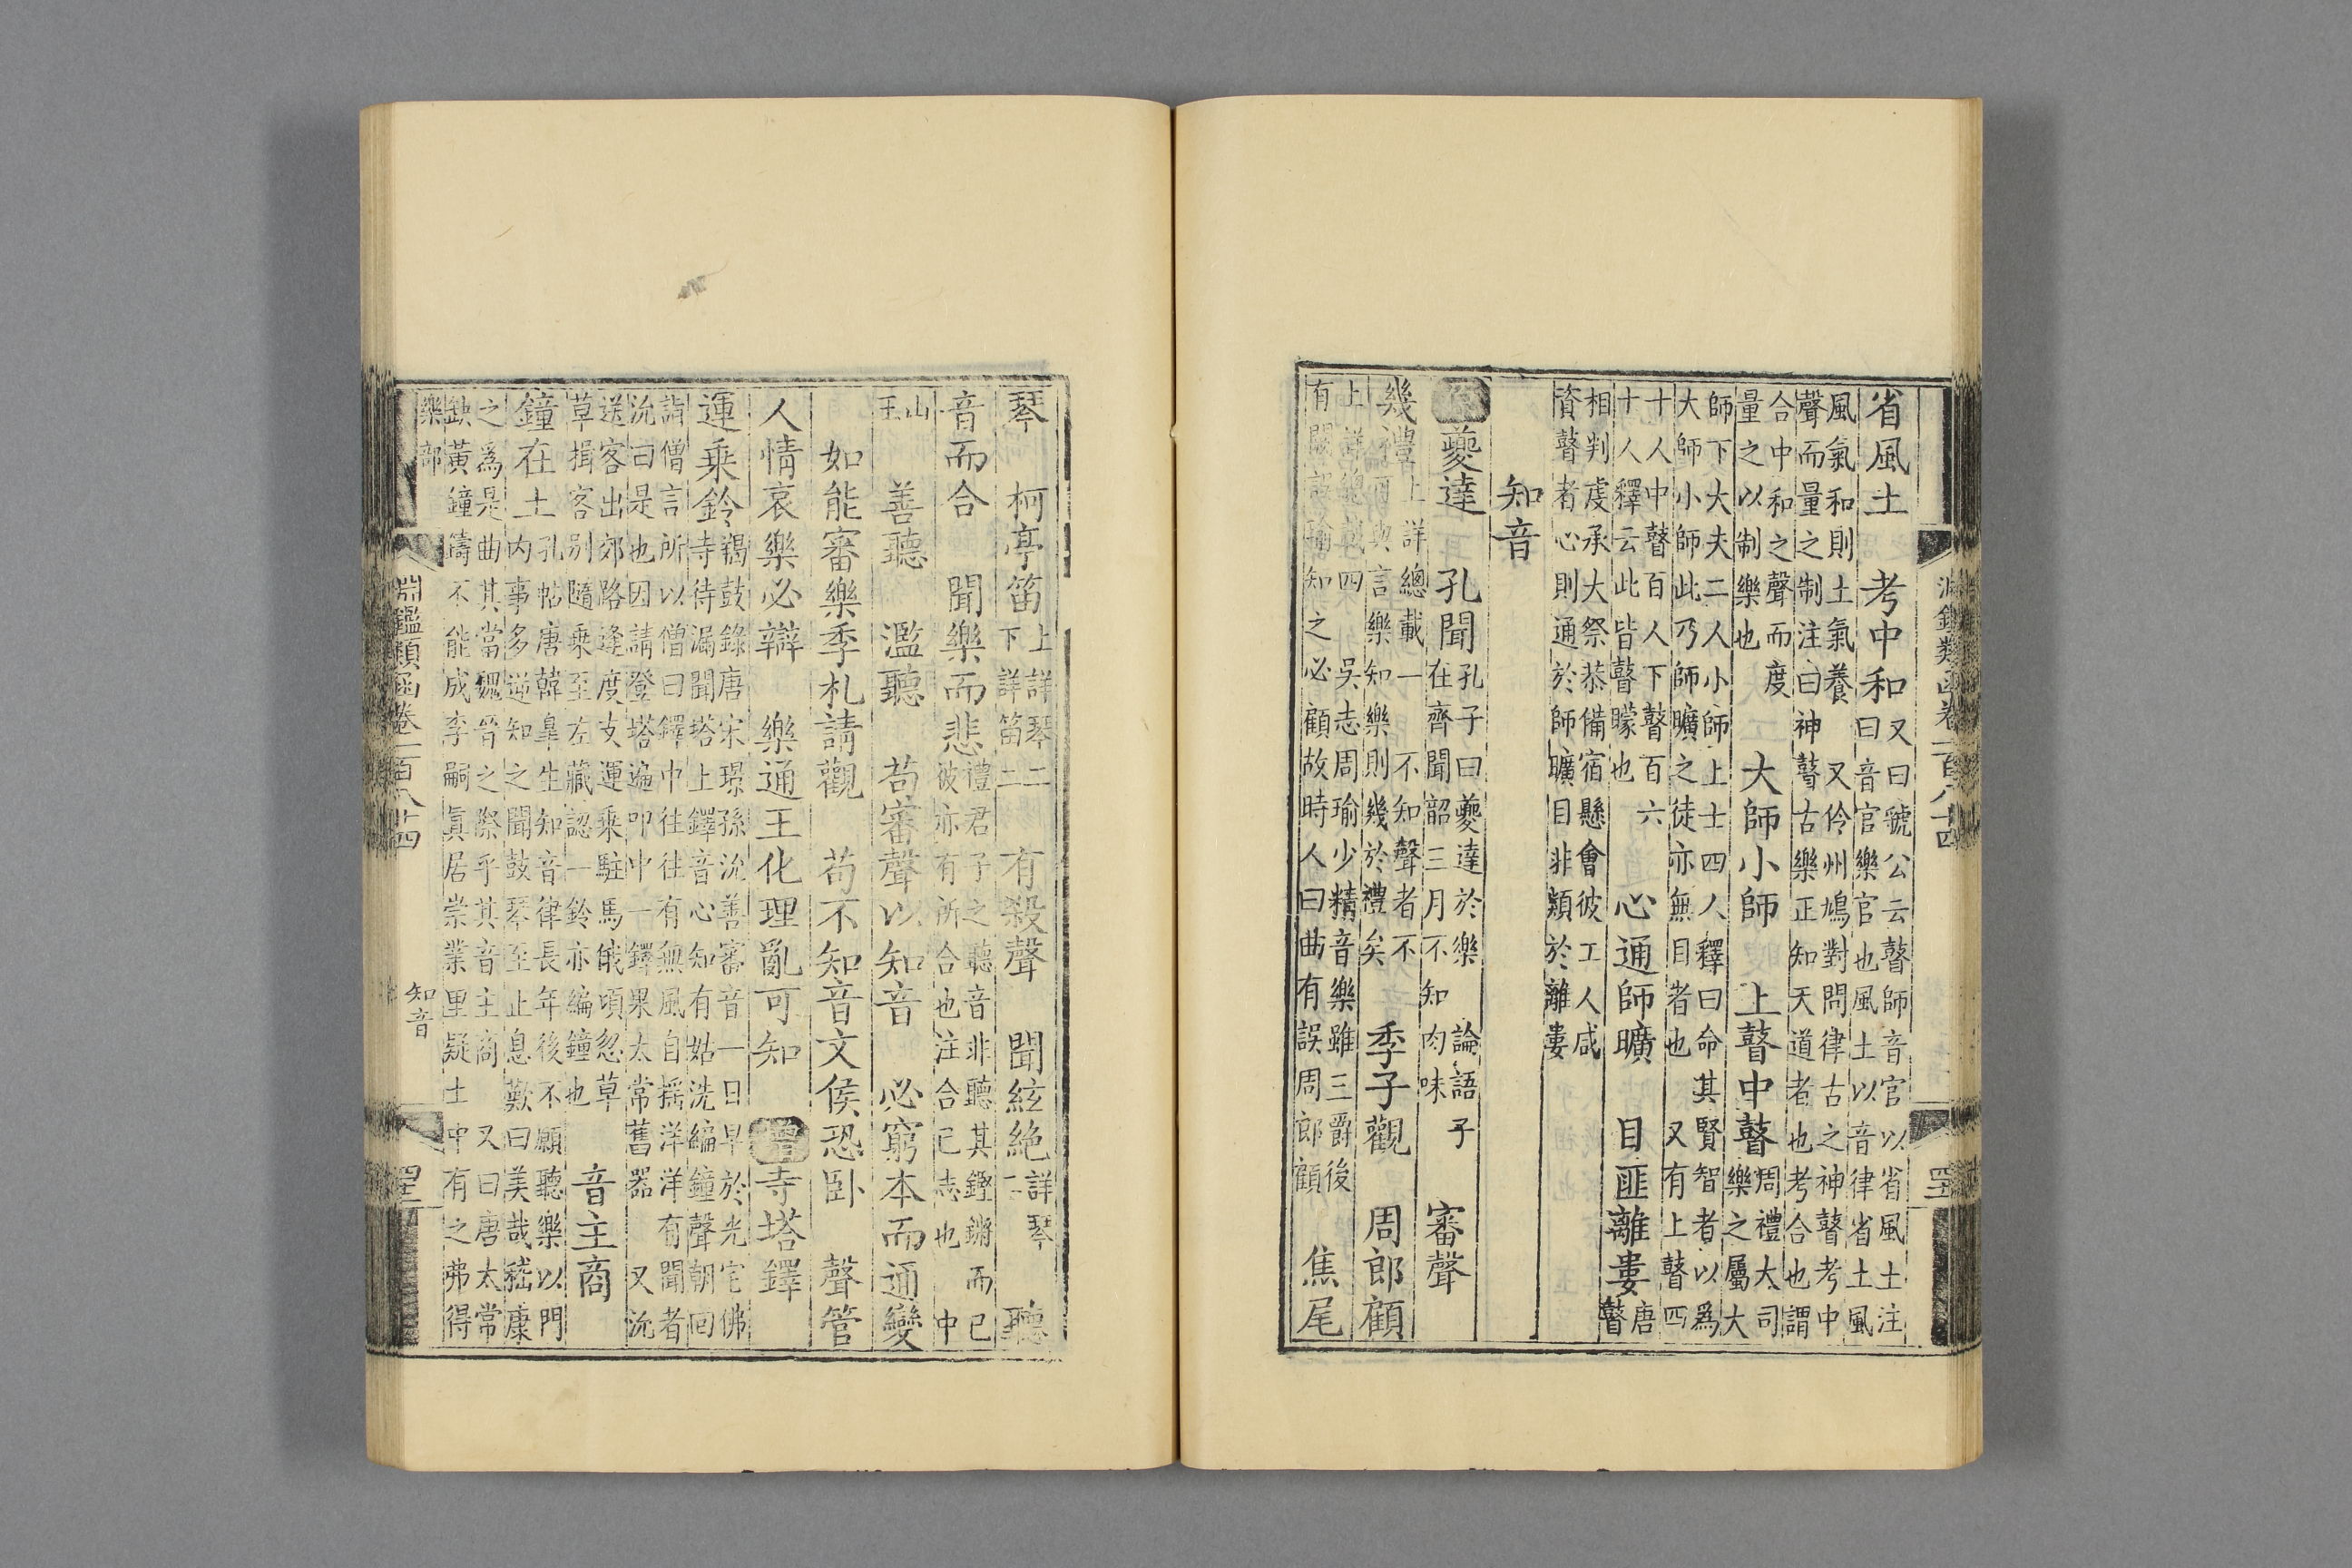 省風土　考中和又曰虢公云瞽師音官以省風土注
曰音官樂官也風土以音律省土風
風氣和則土氣養　又伶州鳩對問律古之神瞽考中
聲而量之制注曰神瞽古樂正知天道者也考合也謂
合中和之聲而度
量之以制樂也　大師小師　上瞽中瞽周禮大司
樂之屬大
師下大夫二人小師上士四人釋曰命其賢智者以爲
大師小師此乃師曠之徒亦無目者也　又有上瞽四
十人中瞽百人下瞽百六
十人釋云此皆瞽矇也　心通師曠　目匪離婁唐
瞽
相判虔承大祭恭備宿懸會彼工人咸
資瞽者心則通於師曠目非類於離婁
知音
夔達　孔聞孔子曰夔達於樂　論語子
在齊聞韶三月不知肉味　審聲
幾禮上詳總載一　不知聲者不
可與言樂知樂則幾於禮矣　季子觀　周郎顧
上詳總載四　吳志周瑜少精音樂雖三爵後
有闕誤瑜知之必顧故時人曰曲有誤周郎顧　焦尾
淵鑑類函卷一百八十四
琴　柯亭笛上詳琴二
下詳笛二　有殺聲　聞絃絶詳琴
二　聽
音而合　聞樂而悲禮君子之聽音非聽其鏗鏘而已
彼亦有所合也注合己志也　中
山
王　善聽　濫聽　苟審聲以知音　必窮本而通變
如能審樂季札請觀　苟不知音文侯恐臥　聲管
人情哀樂必辯　樂通王化理亂可知　增寺塔鐸
運乘鈴羯鼓錄唐宋璟孫沇善審音一日早於光宅佛
寺待漏聞塔上鐸音心知有姑洗編鐘聲朝回
詣僧言所以僧曰鐸中往往有無風自搖洋洋有聞者
沇曰是也因請登塔遍叩中一鐸果太常舊器　又沇
送客出郊路逢度支運乘駐馬俄頃忽草
草揖客別隨乘至左藏認一鈴亦編鐘也
鐘在土孔帖唐韓皐生知音律長年後不願聽樂以門
内事多逆知之聞鼓琴至止息歎曰美哉嵇康
之爲是曲其當魏晉之際乎其音主商　又曰唐太常　音主商
缺黃鐘鑄不能成李嗣眞居崇業里疑土中有之弗得
樂部
淵鑑類函卷一百八十四
知音